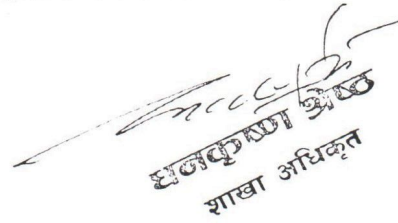 धनकृष्ण श्रेष्ठ
शाखा अधिकृत